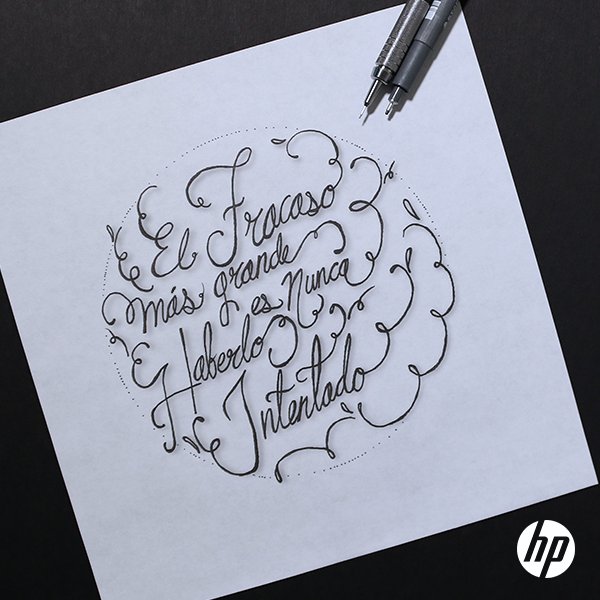 El Fracaso
más grande
es Nunca
Haberlo
Intentado
hp